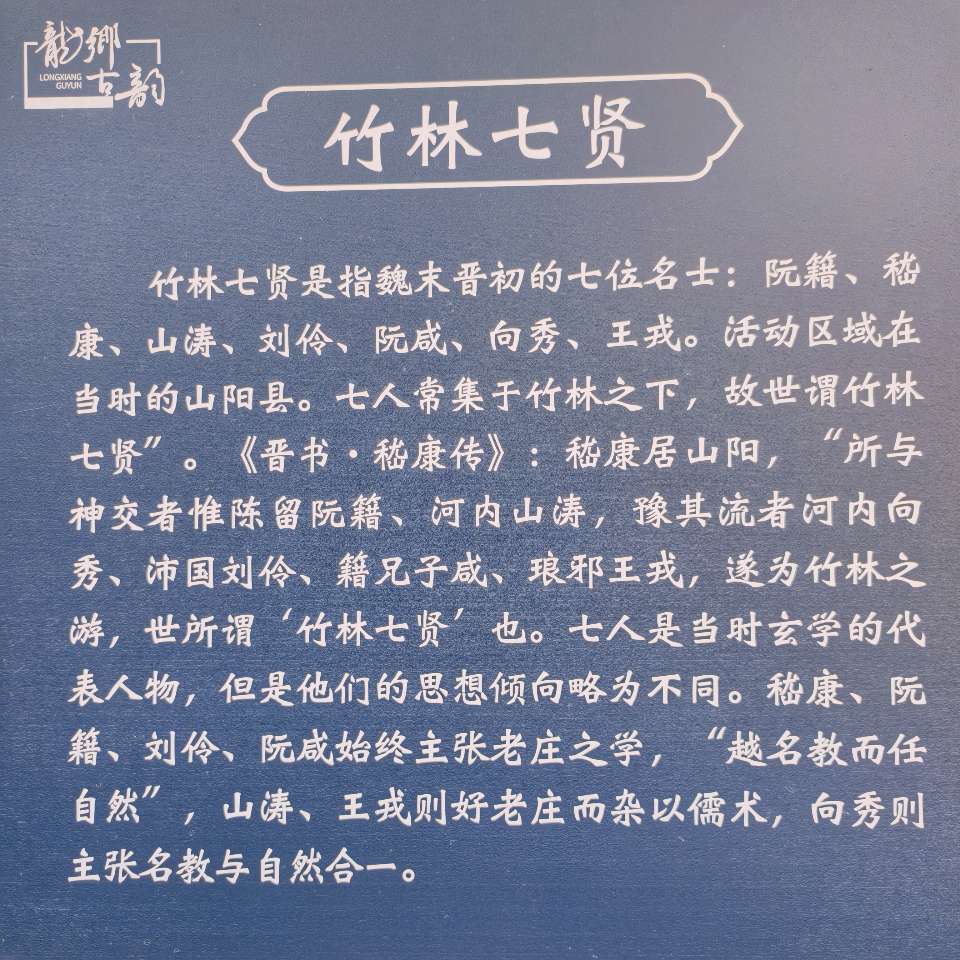 龍鄉
LONGXIANG
GUYUN
古韵
竹林七贤
竹林七贤是指魏末晋初的七位名士：阮籍、嵇
康、山涛、刘伶、阮咸、向秀、王戎。活动区域在
当时的山阳县。七人常集于竹林之下，故世谓竹林
七贤”。《晋书·嵇康传》：嵇康居山阳，“所与
神交者惟陈留阮籍、河内山涛，豫其流者河内向
秀、沛国刘伶、籍兄子咸、琅邪王戎，遂为竹林之
游，世所谓‘竹林七贤’也。七人是当时玄学的代
表人物，但是他们的思想倾向略为不同。嵇康、阮
籍、刘伶、阮咸始终主张老庄之学，“越名教而任
自然”，山涛、王戎则好老庄而杂以儒术，向秀则
主张名教与自然合一。